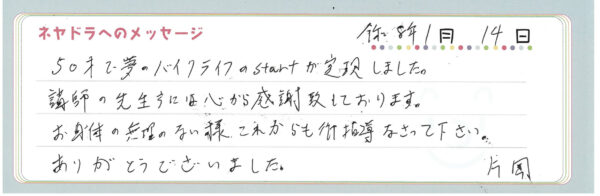 ネヤドラへのメッセージ
令和8年1月14日
50才で夢のバイクライフのstartが実現しました。
講師の先生方には心から感謝致しております。
お身体の無理のない様これからも御指導なさって下さい。
ありがとうございました。
片岡